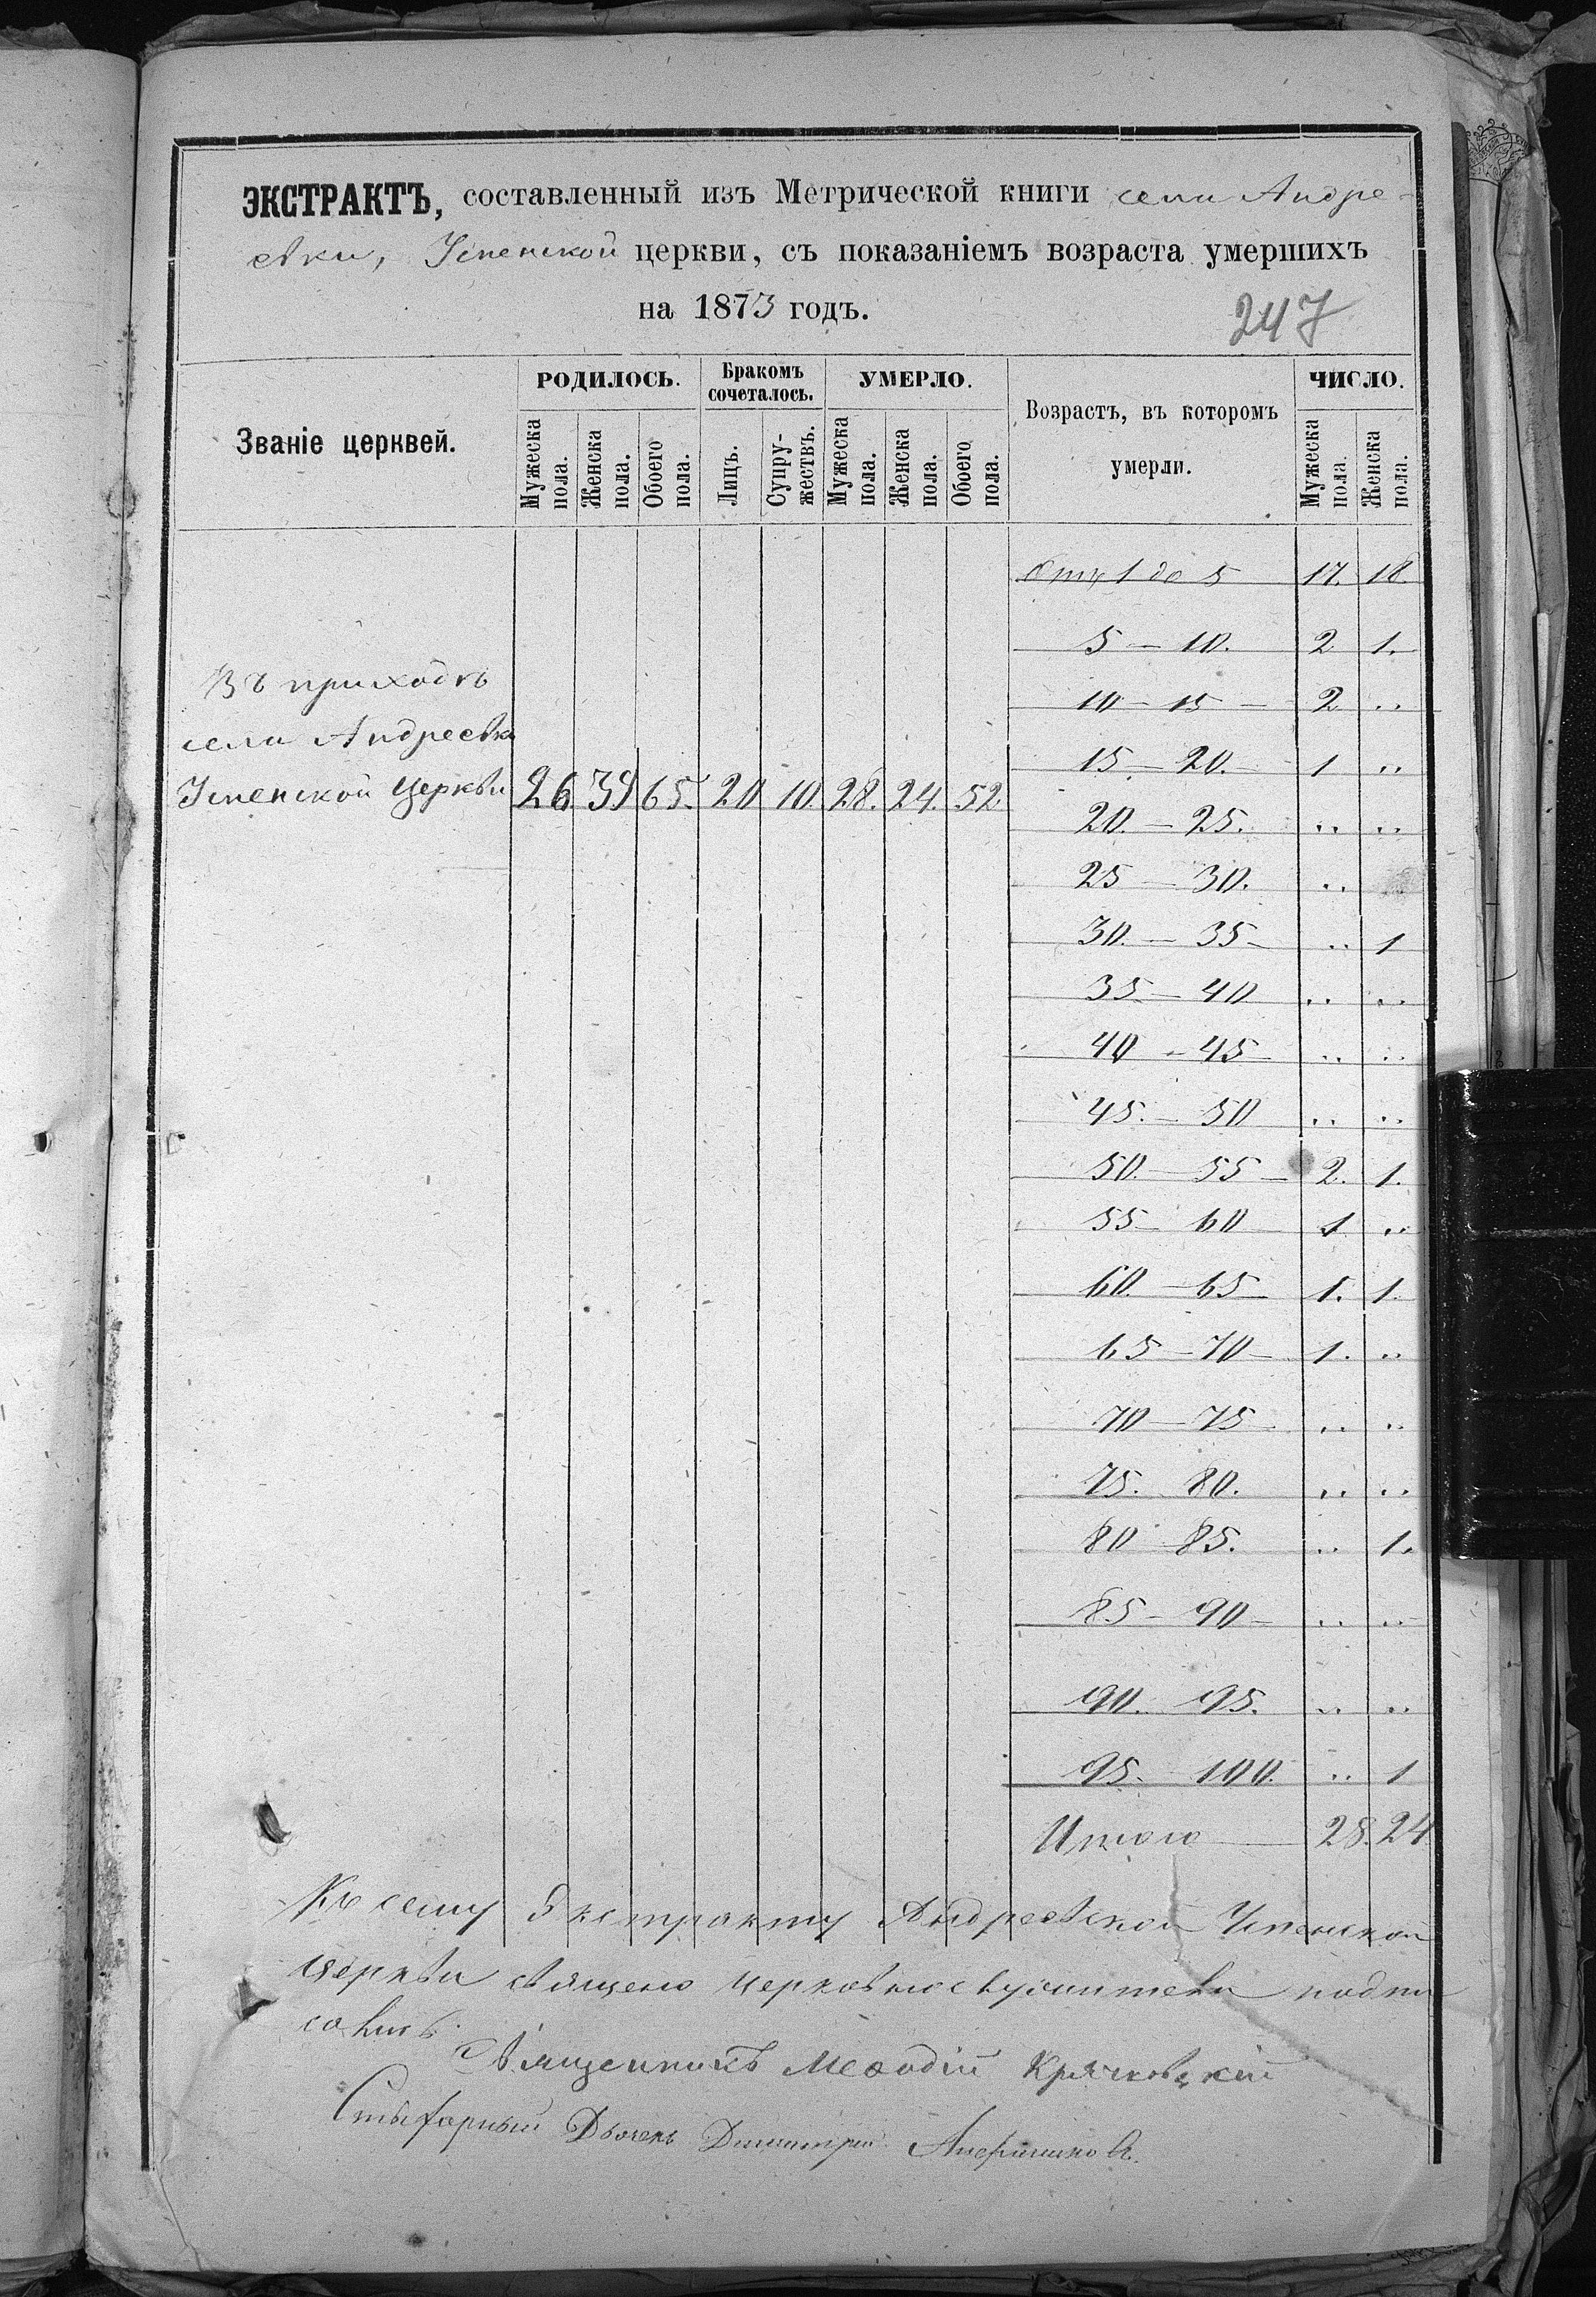 ЭКСТРАКТЪ, составленный изъ Метрической книги села Андре-
евки, Успенской церкви, съ показаніемъ возраста умершихъ
на 1873 годъ.
247
Званіе церквей.
РОДИЛОСЬ.
Мужеска пола.
Женска пола.
Обоего пола.
Бракомъ сочеталось.
Лицъ.
Супру-жествъ.
УМЕРЛО.
Мужеска пола.
Женска пола.
Обоего пола.
Возрастъ, въ которомъ
умерли.
ЧИСЛО.
Мужеска пола.
Женска пола.
Въ приходѣ
села Андреевки
Успенской Церкви 26 39 65. 20 10. 28. 24. 52.
Отъ 1 до 5 17. 18.
5 — 10. 2 1.
10 — 15 — 2 ..
15. — 20. 1 ..
20. — 25. .. ..
25 — 30. ..
30. — 35 — .. 1
35 — 40 .. ..
40 — 45 .. ..
45. — 50 .. ..
50. — 55 — 2. 1.
55 — 60 1 ..
60. — 65 1. 1.
65 — 70 — 1. ..
70 — 75 .. ..
75. 80. .. ..
80 85. .. 1.
85 — 90 — .. ..
90. 95. .. ..
95. 100. .. 1
Итого 28. 24
Къ сему Экстракту Андреевской Успенской
Церкви священо церковнослужители подпи
сались.
Священникъ Меѳодій Крячковскій
Стихарный Дьячекъ Димитрій